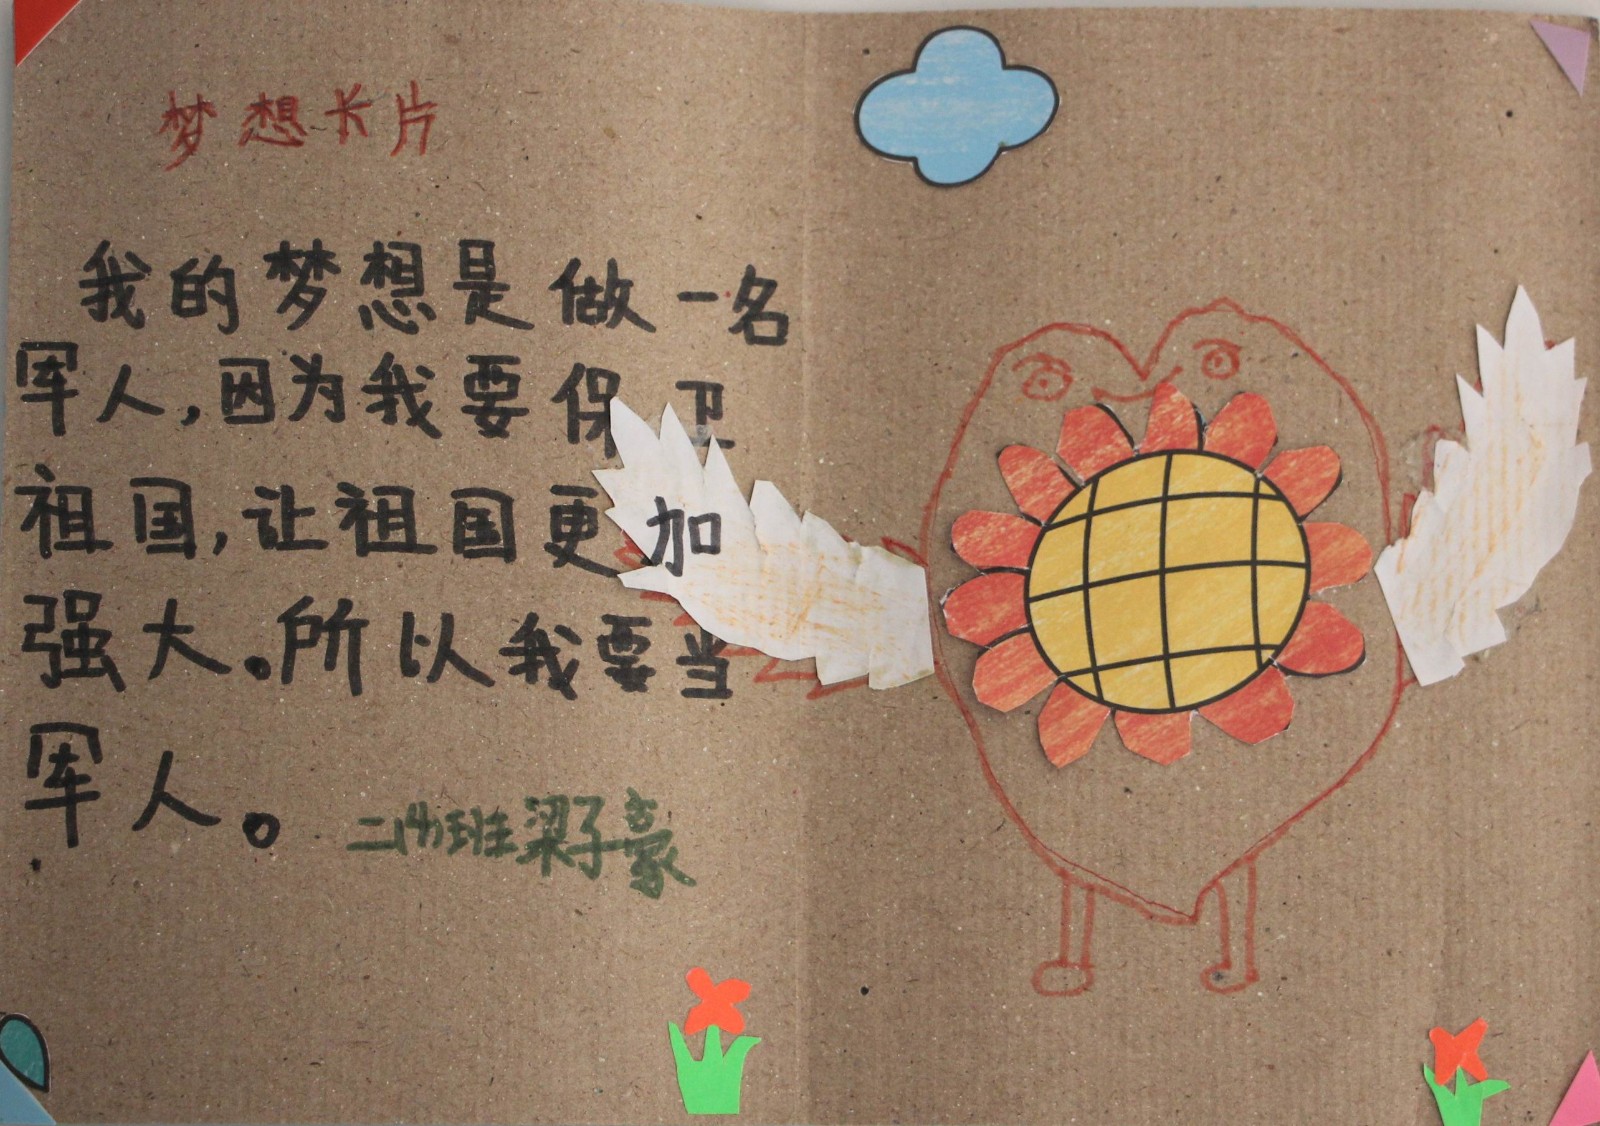 梦想长片
我的梦想是做一名
军人,因为我要保卫
祖国,让祖国更加
强大。所以我要当
军人。
二(4)班梁子豪